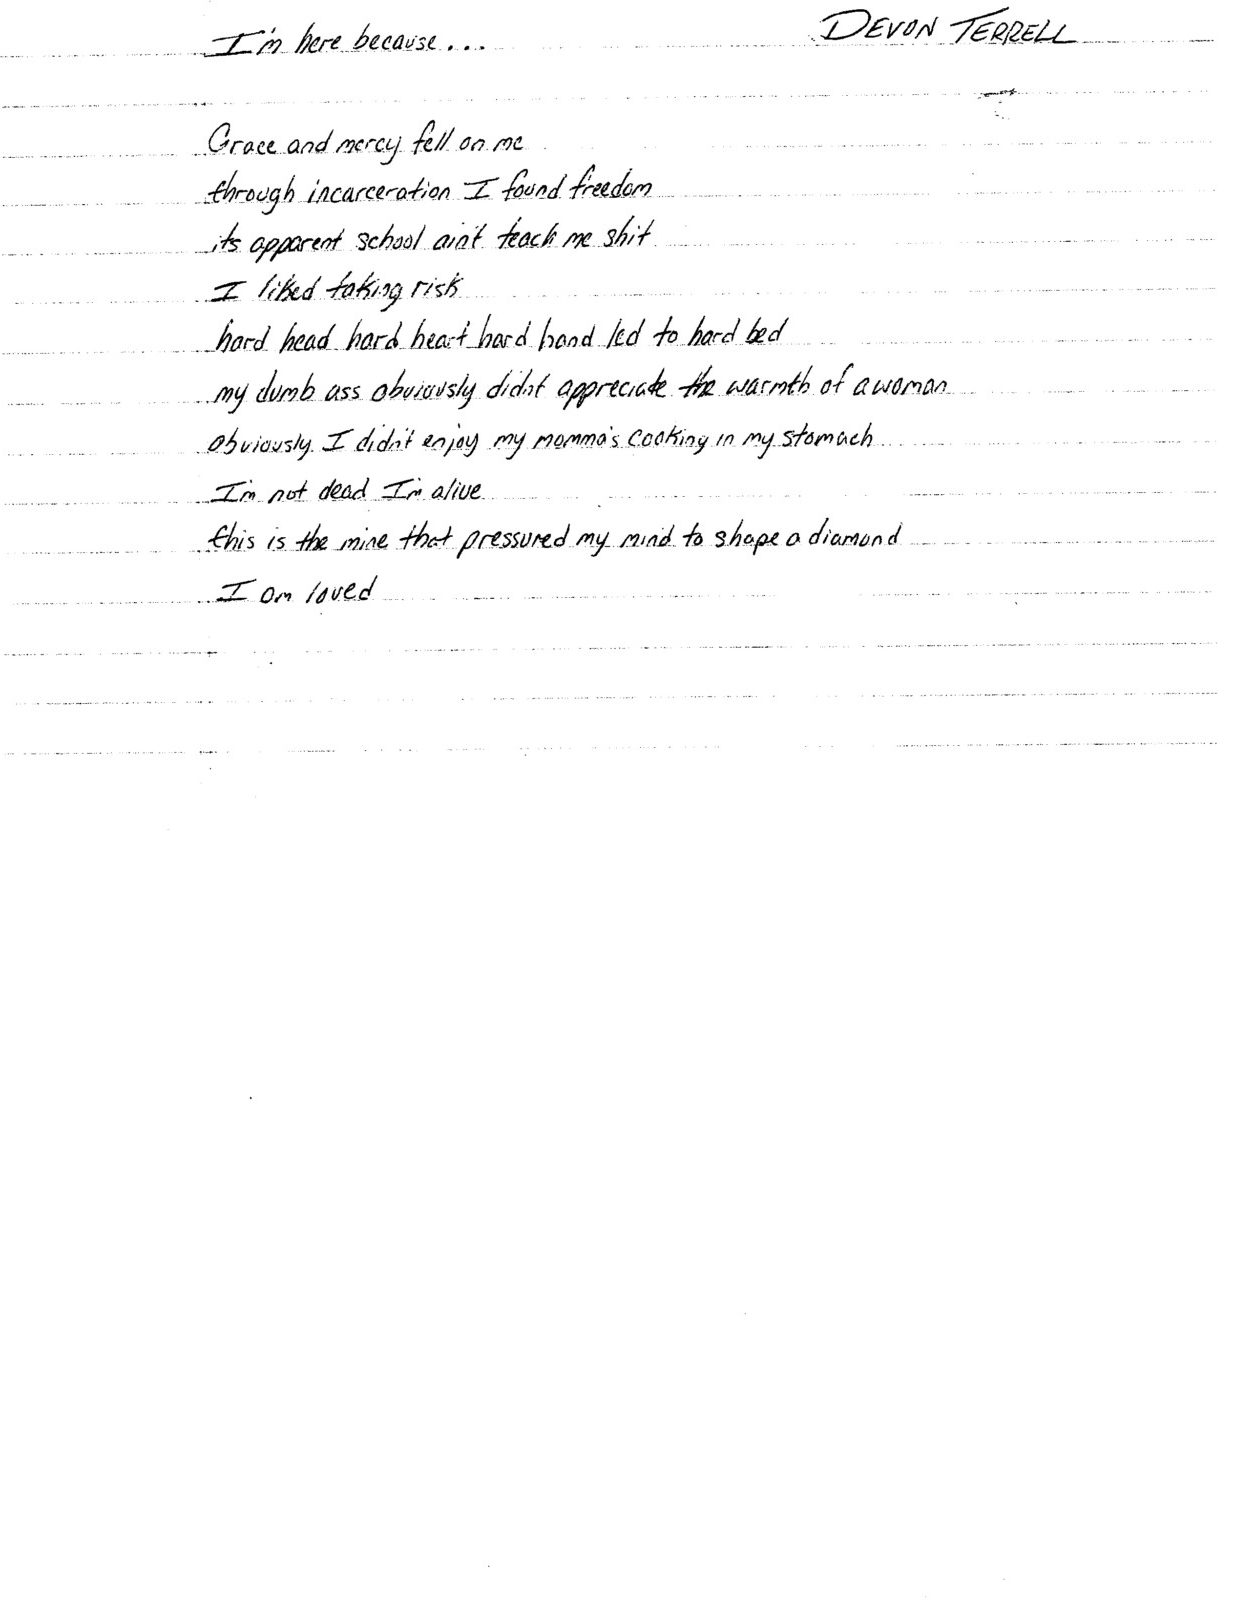 I'm here because...    DEVON TERRELL
Grace and mercy fell on me
through incarceration I found freedom
its apparent school ain't teach me shit
I liked taking risk
hard head hard heart hard hand led to hard bed
my dumb ass obviously didn't appreciate the warmth of a woman
obviously I didn't enjoy my momma's cooking in my stomach
I'm not dead I'm alive
this is the mine that pressured my mind to shape a diamond
I am loved